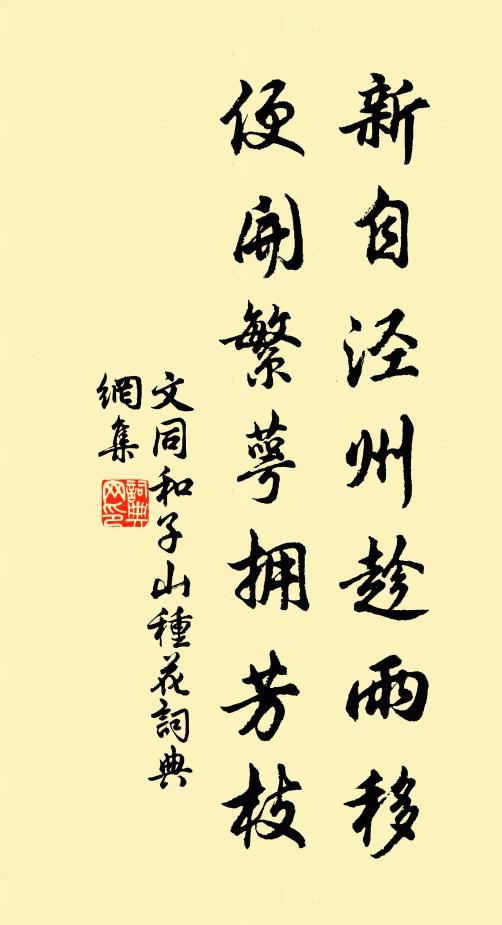 新自泾州趁雨移
便開繁萼拥芳枝
文同和子山種花詞典
網集
詞典
网印